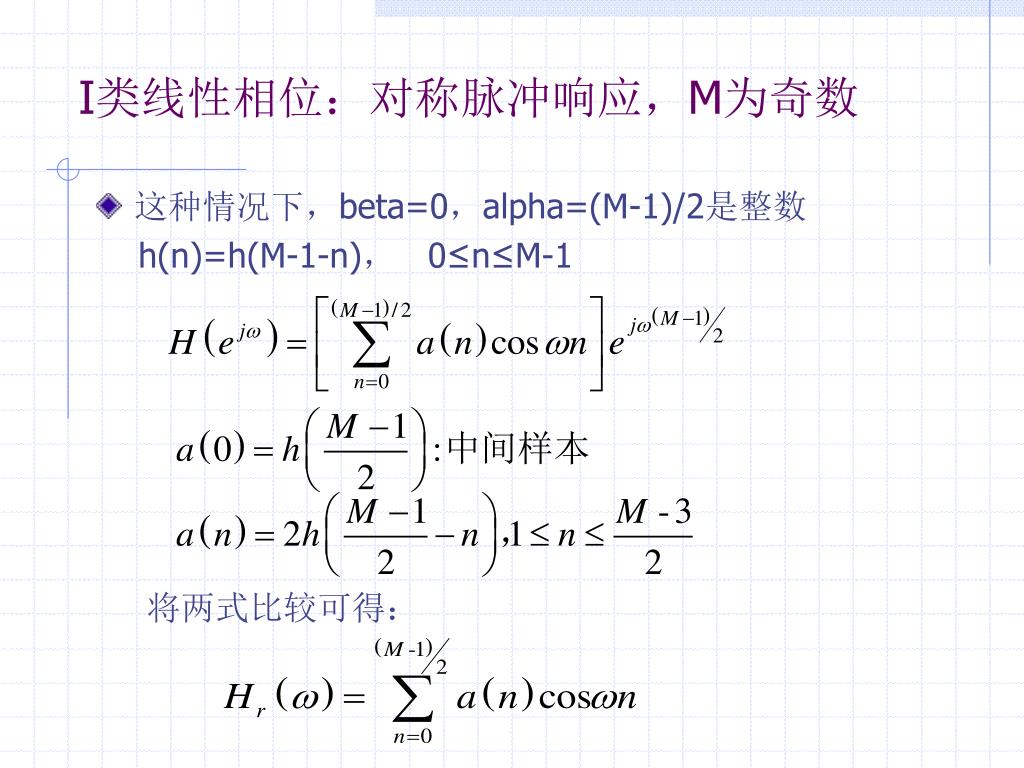 I类线性相位：对称脉冲响应，M为奇数
这种情况下，beta=0，alpha=(M-1)/2是整数
h(n)=h(M-1-n)， 0≤n≤M-1
H(e^{jω}) = [∑_{n=0}^{(M−1)/2} a(n)cos ωn] e^{jω(M−1)/2}
a(0) = h((M−1)/2) :中间样本
a(n) = 2h((M−1)/2 − n), 1 ≤ n ≤ (M-3)/2
将两式比较可得：
H_r(ω) = ∑_{n=0}^{(M-1)/2} a(n)cosωn